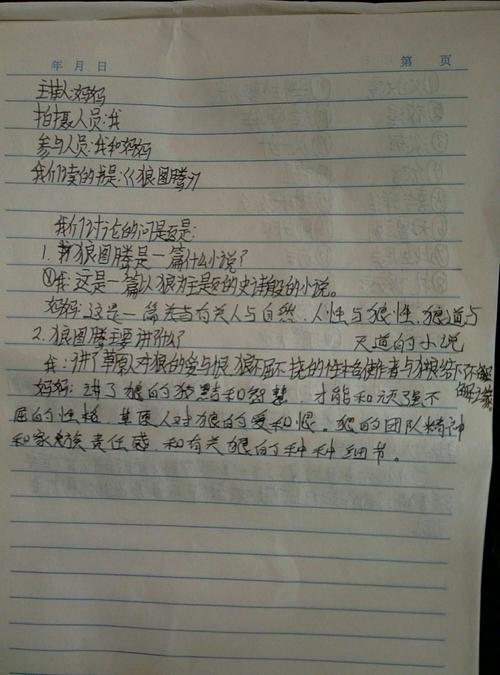 年 月 日
第 页
主持人:妈妈
拍摄人员:我
参与人员:我和妈妈
我们读的书是:《狼图腾》
我们讨论的问题是:
1. 狼图腾是一篇什么小说?
我:这是一篇以狼为主题的史诗般的小说。
妈妈:这是一篇关于有关人与自然、人性与狼性、狼道与
天道的小说
2. 狼图腾主要讲什么?
我:讲了草原人对狼的爱与恨,狼不屈不挠的性格使作者与狼结下不解
妈妈:讲了狼的狡黠和智慧、才能和顽强不
屈的性格,草原人对狼的爱和恨。狼的团队精神
和家族责任感,和有关狼的种种细节。